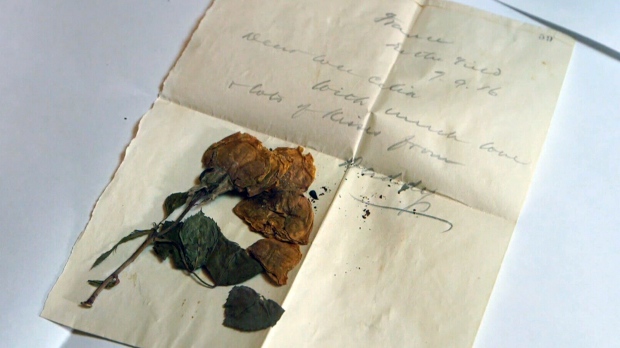 France
In the Field
7.9.16
Dear Wee Celia
With much love
& lots of Kisses from
Daddy